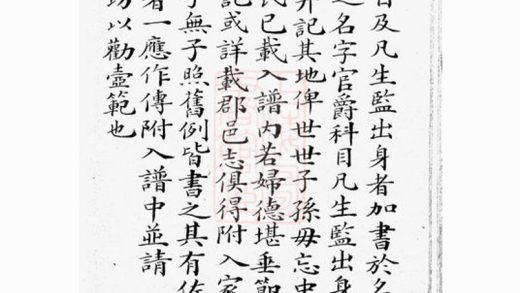 及凡生監出身者加書於名
之名字官爵科目凡生監出身
記其地俾世世子孫毋忘
氏已載入譜內若婦德堪垂節
記或詳載郡邑志俱得附入家
無子照舊例皆書之其有
者一應作傳附入譜中並請
以勸壼範也